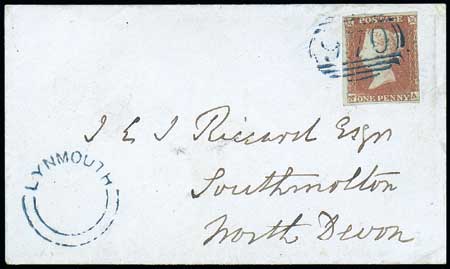 POSTAGE
ONE PENNY
J E J Riccard Esqr
Southmolton
North Devon
LYNMOUTH